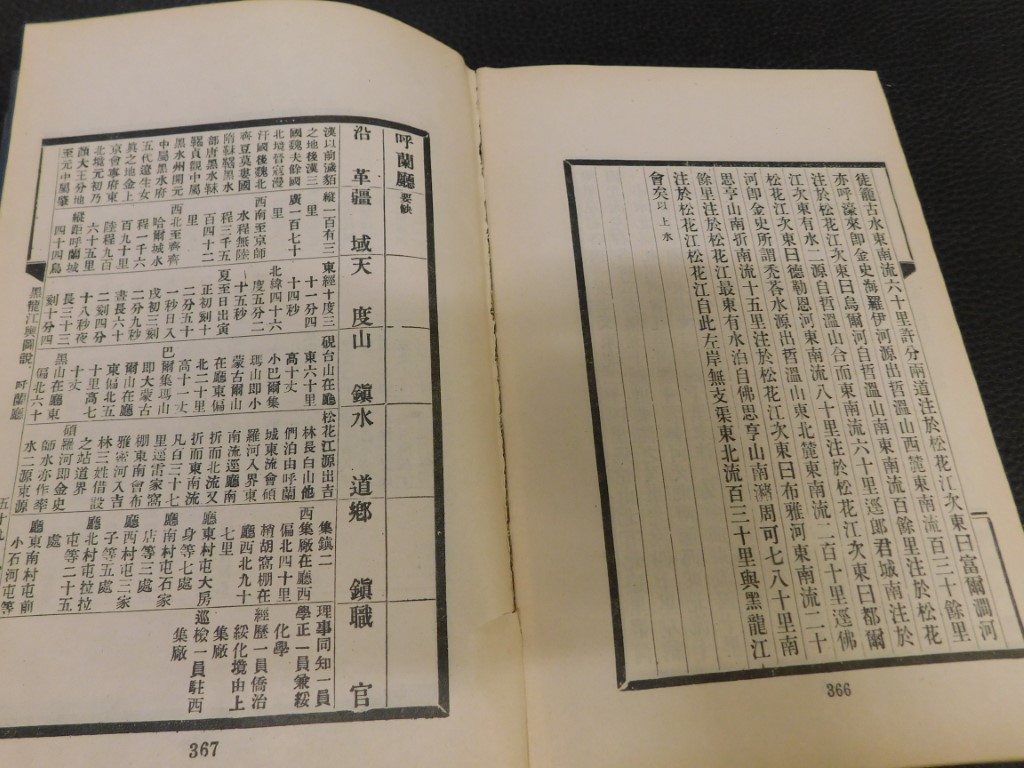 徒龍古水東南流六十里許分兩道注於松花江次東曰富爾澗河
亦呼濠來卽金史海羅伊河源出哲溫山西麓東南流百三十餘里
注於松花江次東曰烏爾河自哲溫山南東南流百餘里注於松花
江次東有水二源自哲溫山合而東南流六十里逕郞君城南注於
松花江次東曰德勒恩河東南流八十里注於松花江次東曰都爾
河卽金史所謂禿荅水源出哲溫山東北麓東南流二百十里逕佛
思亨山南折南流十五里注於松花江次東曰布雅河東南流二十
餘里注於松花江最東有水泊自佛思亨山南瀦周可七八十里南
注於松花江松花江自此左岸無支渠東北流百三十里與黑龍江
會矣以上水
366
呼蘭廳 要缺
沿革
疆域
天度
山鎮
水道
鄉鎮
職官
漢以前濊貊
之地後漢三
國魏夫餘國
北境晉寇漫
汗國後魏北
齊豆莫婁國
隋靺鞨黑水
部唐黑水靺
鞨貞觀中屬
黑水州開元
中屬黑水府
五代遼生女
眞之地金上
京會寧府東
北境元初乃
顏大王分地
至元中屬肇
縱一百有三
里
廣一百七十
里
西南至京師
水程無陸
程三千五
百四十二
里
西北至齊齊
哈爾城水
程一千六
百九十里
陸程九百
六十五里
縱距呼蘭城
四十四烏
東經十度三
十一分四
十四秒
北緯四十六
度五分二
十五秒
夏至日出寅
正初刻十
二分五十
一秒日入
戌初三刻
二分九秒
晝長六十
二刻四分
十八秒夜
長三十三
刻十分四
硯台山在廳
東六十里
高十丈
小巴爾集
瑪山卽小
蒙古爾山
在廳東偏
北二十里
高十一丈
巴爾集瑪山
卽大蒙古
爾山在廳
東偏北五
十里高七
十丈
黑山在廳東
偏北六十
松花江源出吉
林長白山他
們泊由呼蘭
城東流會碩
羅河入界東
南流逕廳南
折而北流又
折而東南流
凡百三十七
里逕雷家窩
棚東南會布
雅密河入吉
林三姓借設
之站道界
碩羅河卽金史
帥水亦作率
水二源東源
集鎮二
西集廠在廳西
偏北四十里
稍胡窩棚在
廳西北九十
七里
廳東村屯大房
身等七處
廳南村屯石家
店等三處
廳西村屯三家
子等五處
廳北村屯拉拉
屯等二十五
處
廳東南村屯前
小石河屯等
理事同知一員
學正一員兼綏
化學
經歷一員僑治
綏化境由上
集廠
巡檢一員駐西
集廠
黑龍江輿圖說 呼蘭廳
367